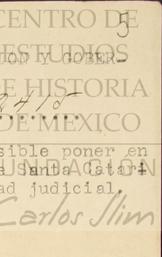 5
CENTRO DE
ESTUDIOS
ION Y GOBER-
DE HISTORIA
2415
DE MEXICO
sible poner en
FUNDACIÓN
e Santa Catar-
ad judicial.
Carlos Slim